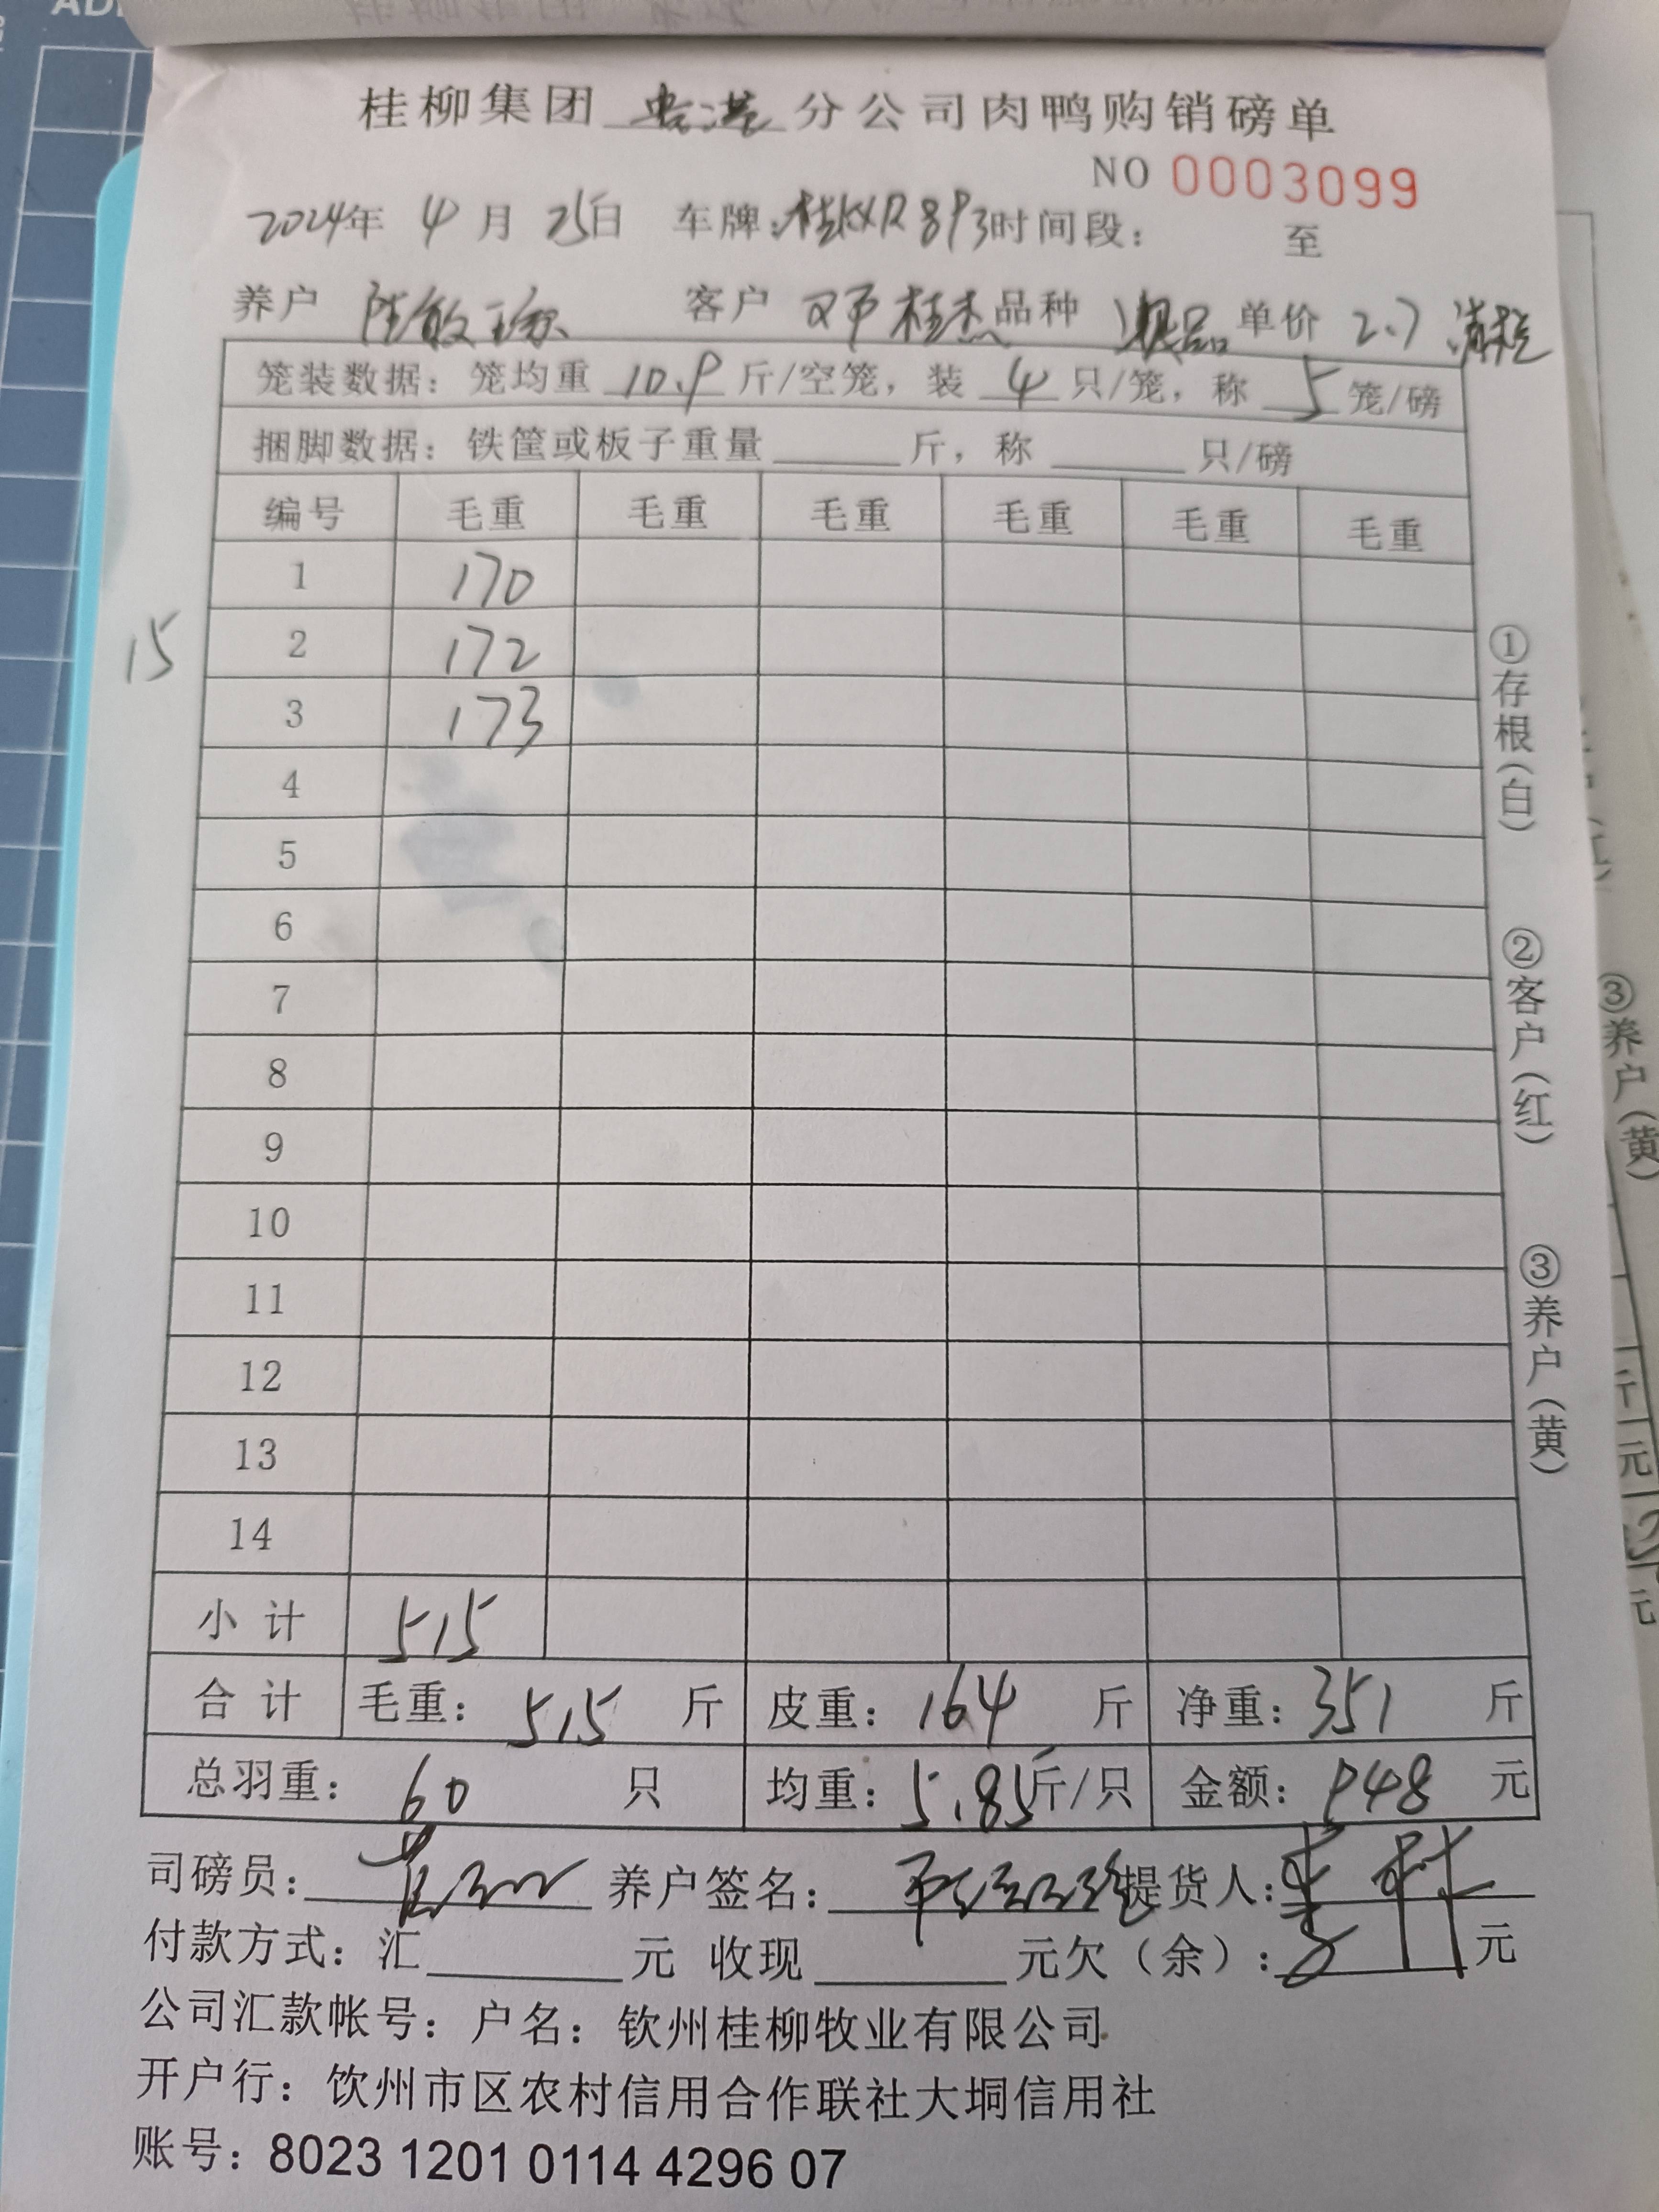 桂柳集团 贵港 分公司肉鸭购销磅单
NO 0003099
2024年 4月 25日 车牌: 893 时间段： 至
养户 陆敏 客户 邓桂杰 品种 单价 2.7 清棚
笼装数据：笼均重 10.9 斤/空笼，装 4 只/笼，称 5 笼/磅
捆脚数据：铁筐或板子重量 斤，称 只/磅
编号 毛重 毛重 毛重 毛重 毛重 毛重
1 170
15 2 172
3 173
4
5
6
7
8
9
10
11
12
13
14
小计 515
合计 毛重：515 斤 皮重：164 斤 净重：351 斤
总羽重：60 只 均重：5.85斤/只 金额：948 元
司磅员： 养户签名： 提货人：
付款方式：汇 元 收现 元欠（余）： 元
公司汇款帐号：户名：钦州桂柳牧业有限公司
开户行：钦州市区农村信用合作联社大垌信用社
账号：8023 1201 0114 4296 07
①存根（白）
②客户（红）
③养户（黄）
③养户（黄）